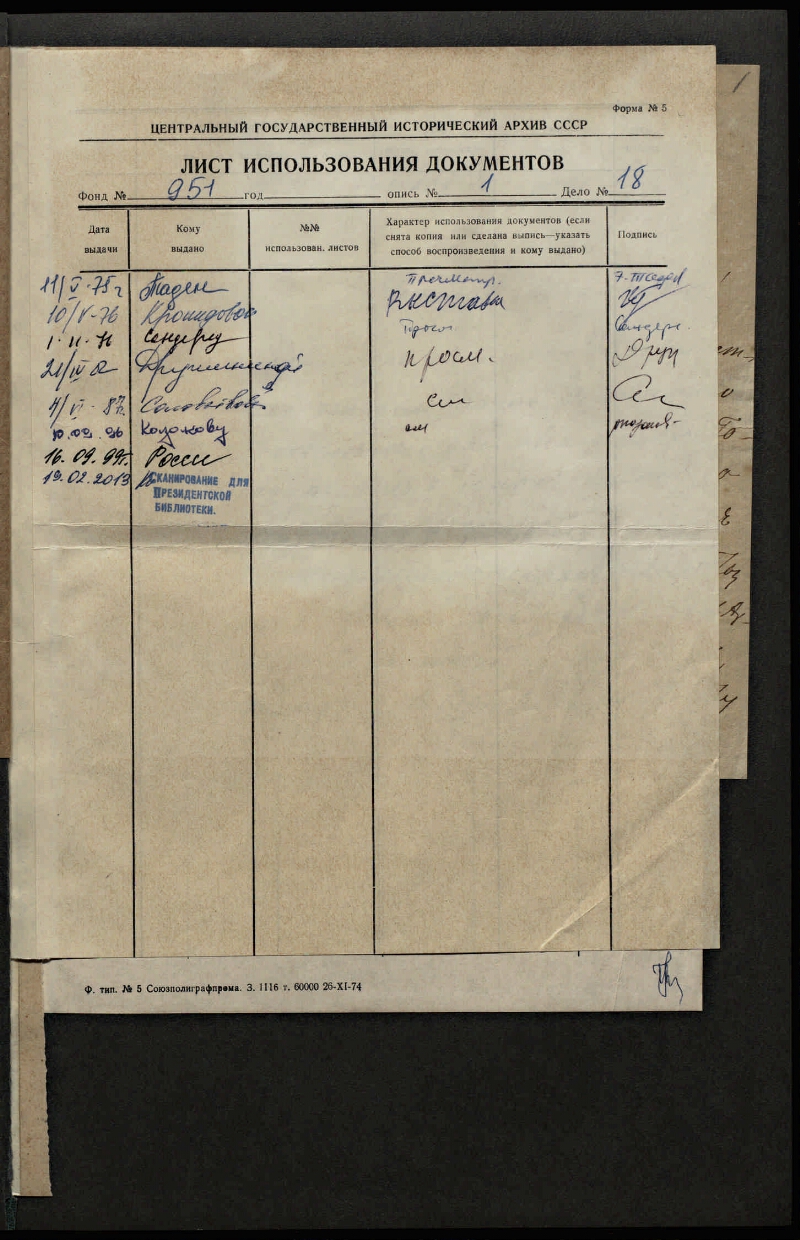 Форма № 5
ЦЕНТРАЛЬНЫЙ ГОСУДАРСТВЕННЫЙ ИСТОРИЧЕСКИЙ АРХИВ СССР
ЛИСТ ИСПОЛЬЗОВАНИЯ ДОКУМЕНТОВ
Фонд № 951 год опись № 1 Дело № 18
Дата выдачи
Кому выдано
№№ использован. листов
Характер использования документов (если снята копия или сделана выпись—указать способ воспроизведения и кому выдано)
Подпись
11/V-75 г Таден Просмотр.
10/V-76 Выставка
Сендерец
21/IV просм.
4/VI-87. Соловьевой см
10.09.96 см
16.09.99г. Росси
19.02.2013 СКАНИРОВАНИЕ ДЛЯ
ПРЕЗИДЕНТСКОЙ
БИБЛИОТЕКИ.
Ф. тип. № 5 Союзполиграфпрома. З. 1116 т. 60000 26-XI-74